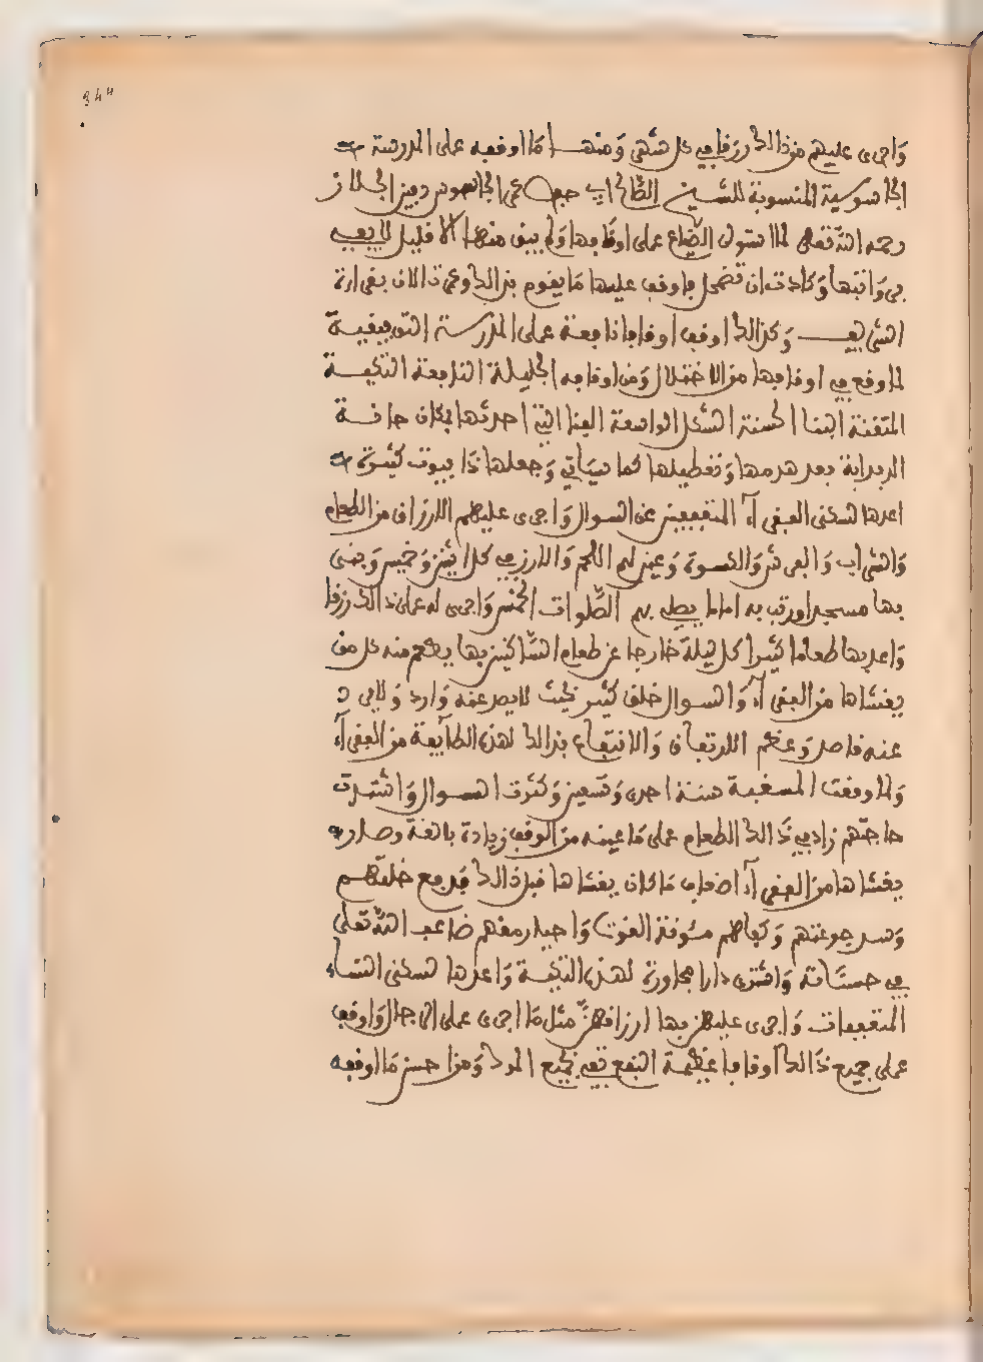 344
واجرى عليهم من ذالك رزقا في كل شهر ومنهـا ما اوقفه على المدرسة
الجاسوسية المنسوبة للشيخ الصالح ابي حفص عمر الجاسوس دفين الجلاز
رحمه الله تعلى لما استولى الضياع على اوقافها ولم يبق منها الا قليل لا يفي
وكادت ان تضمحل فاوقف عليها ما يقوم بذالك وعمرت الان بقراءة
الشريف وكذالك اوقف اوقافا نافعة على المدرسة التوفيقية
لما وقع في اوقافها من الاختلال ومن اوقافه الجليلة النافعة التكية
المتقنة البنا الحسنة الشكل الواسعة الفنا التي احدثها بمكان
بعد هدمها وتعطيلها كما سياتي وجعلها ذا بيوت كثيرة
اعدها لسكنى الفقراء المتعففين عن السوال واجرى عليهم الارزاق من الطعام
والشراب والفرش والكسوة وعين لهم اللحم والارز في كل اثنين وخميس وبنى
بها مسجدا ورتب به اماما يصلي بهم الصلوات الخمس واجرى له على ذالك رزقا
واعد بها طعاما كثيرا كل ليلة خارجا عن طعام الساكنين بها يطعم منه كل من
يغشاها من الفقراء والسوال خلق كثير بحيث لا يصد عنه وارد ولا يرد
عنه قاصد وعظم الارتفاق والانتفاع بذالك لهذه الطايفة من الفقراء
ولما وقعت المسغبة سنة احدى وتسعين وكثرت السوال واشتدت
حاجتهم زاد في ذالك الطعام على ما عينه من الوقف زيادة بالغة وصار
يغشاها من الفقراء اضعاف ما كان يغشاها قبل ذالك فرفع خلتهم
وسد جوعتهم وكفاهم مئونة القوت واحيا رمقهم ضاعف الله تعلى
في حسناته واشترى دارا مجاورة لهذه التكية واعدها لسكنى النساء
المتعففات واجرى عليهن بها ارزاقهن مثل ما اجرى على الرجال واوقف
على جميع ذالك اوقافا عظيمة النفع تفي بجميع المدد ومن احسن ما اوقفه